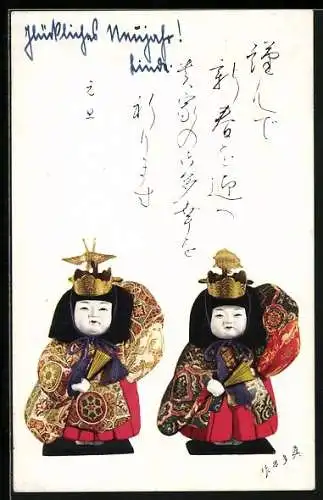 Glückliches Neujahr!
Linde
謹んで
新春を迎へ
貴家の御多幸を
祈ります
元旦